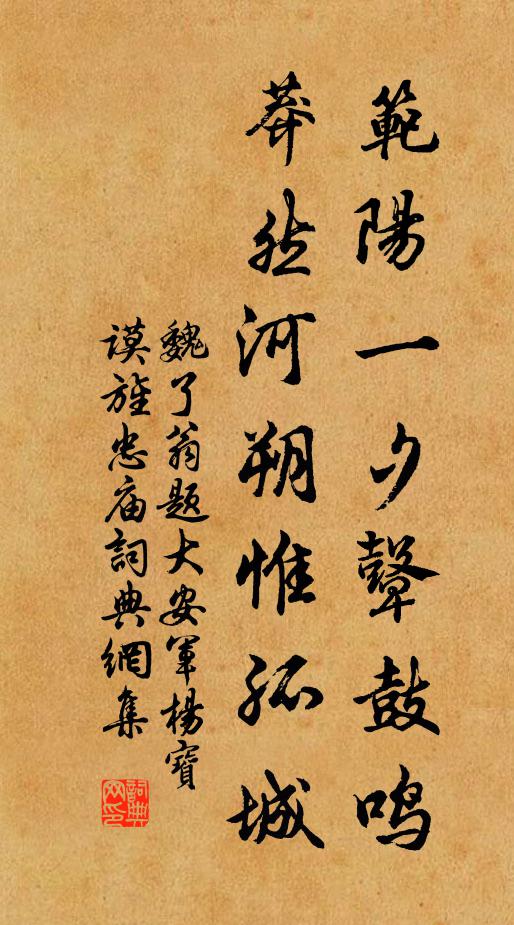 範陽一夕鼙鼓鳴
莽然河朔惟孤城
魏了翁题大安軍楊寶
謨旌忠庙詞典網集
詞典
网印